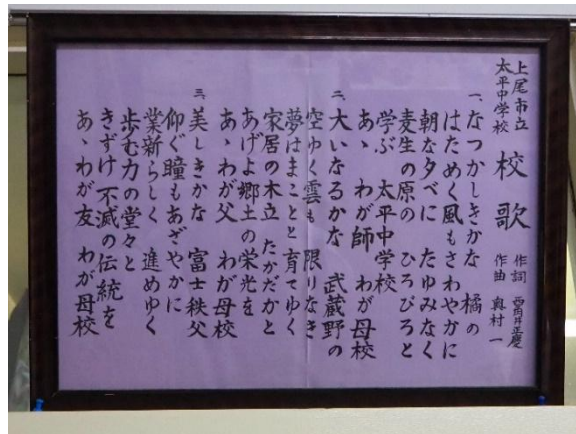 上尾市立
太平中学校
校歌
作詞 西角井正慶
作曲 奥村一
一、なつかしきかな 橘の
はためく風もさわやかに
朝な夕べに たゆみなく
麦生の原の ひろびろと
学ぶ 太平中学校
あゝ わが師 わが母校
二、大いなるかな 武蔵野の
空ゆく雲も 限りなき
夢はまことと 育てゆく
家居の木立 たかだかと
あげよ郷土の栄光を
あゝわが父 わが母校
三、美しきかな 富士秩父
仰ぐ瞳もあざやかに
業新らしく 進めゆく
歩む力の堂々と
きずけ不滅の伝統を
あゝわが友 わが母校